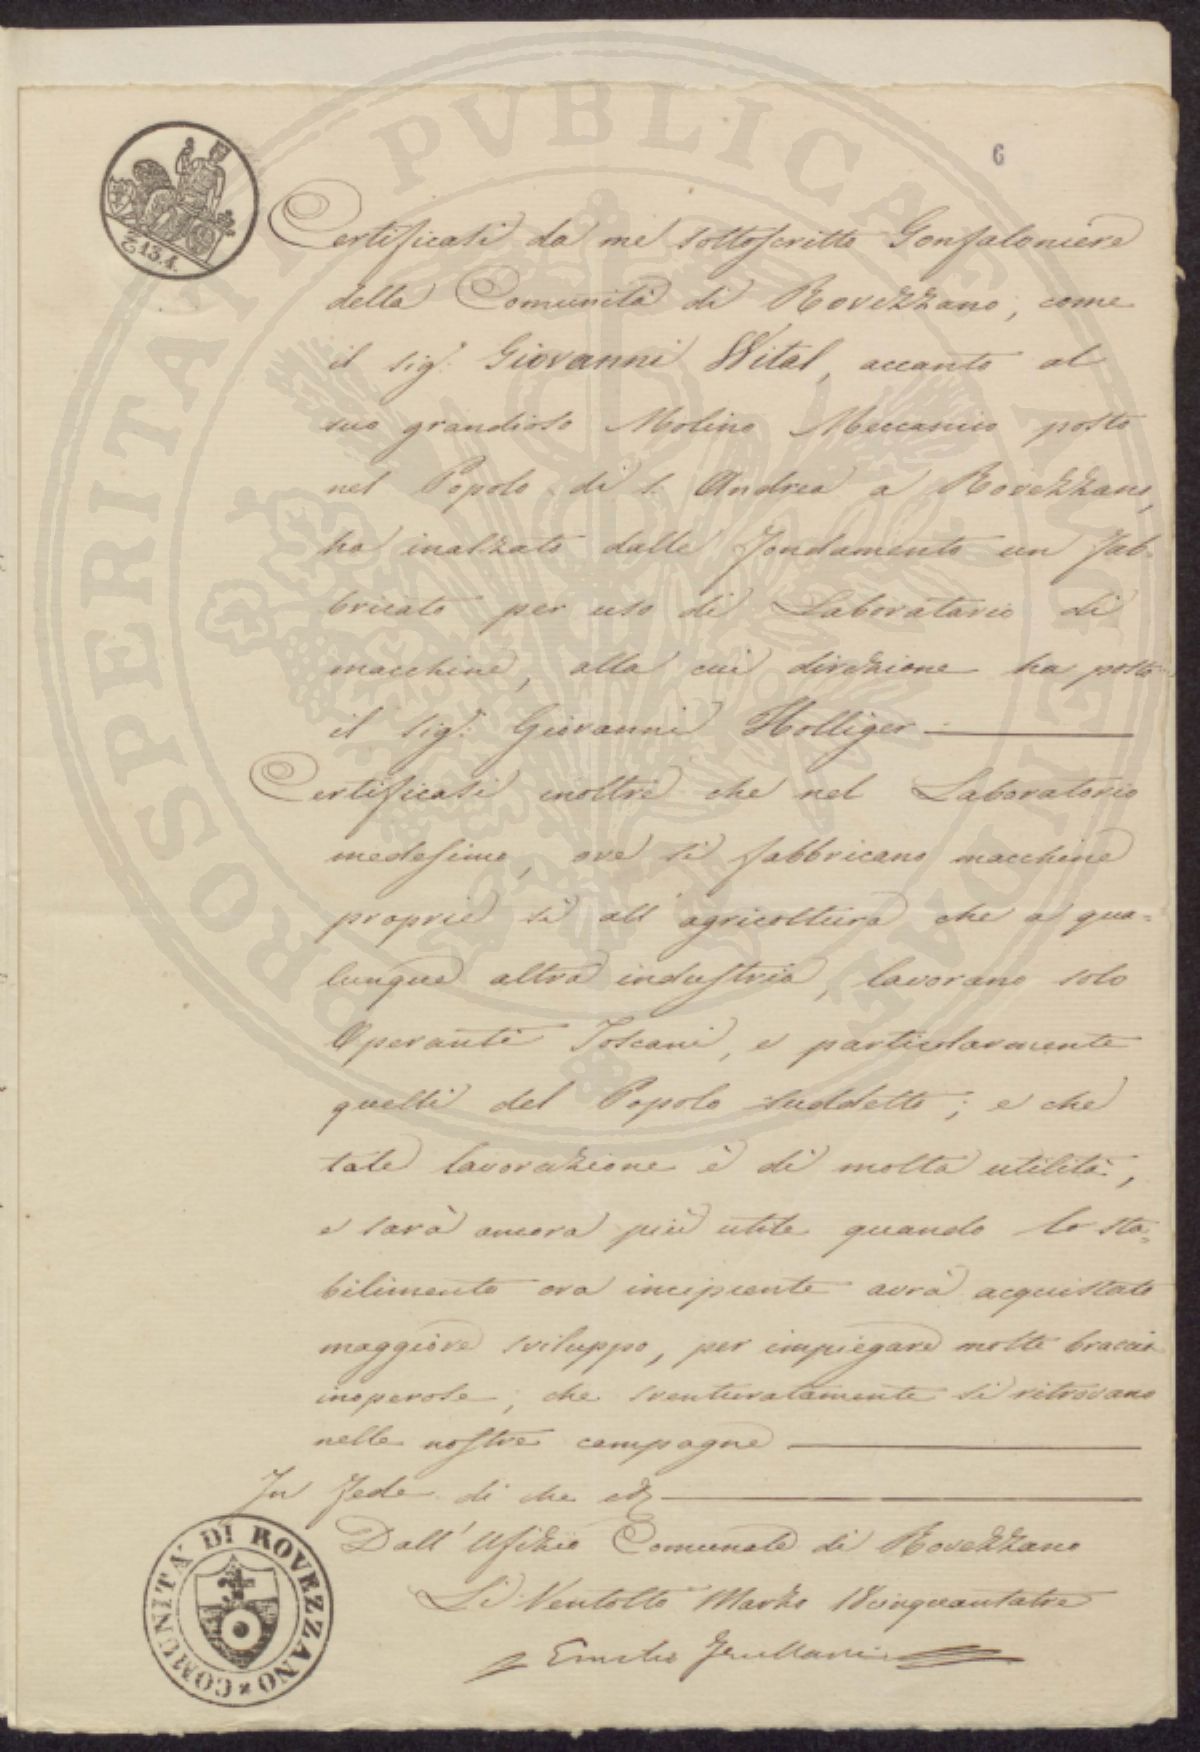 PROSPERITATI PVBLICAE AVGENDAE
6
£ 13.4.
Certificasi da me sottoscritto Gonfaloniere
della Comunità di Rovezzano, come
il sig.r Giovanni Wital, accanto al
suo grandioso Molino Meccanico posto
nel Popolo di S. Andrea a Rovezzano,
ha inalzato dalle fondamenta un fab-
bricato per uso di Laboratorio di
macchine, alla cui direzione ha posto
il sig.r Giovanni Holliger
Certificasi inoltre che nel Laboratorio
medesimo, ove si fabbricano macchine
proprie sì all'agricoltura che a qua=
lunque altra industria, lavorano solo
Operanti Toscani, e particolarmente
quelli del Popolo suddetto; e che
tale lavorazione è di molta utilità,
e sarà ancora più utile quando lo sta=
bilimento ora incipiente avrà acquistato
maggiore sviluppo, per impiegare molte braccia
inoperose, che sventuratamente si ritrovano
nelle nostre campagne
In fede di che
Dall'Ufizio Comunale di Rovezzano
Li Ventotto Marzo 18cinquantatre
Emilio Grullani
COMUNITA' DI ROVEZZANO